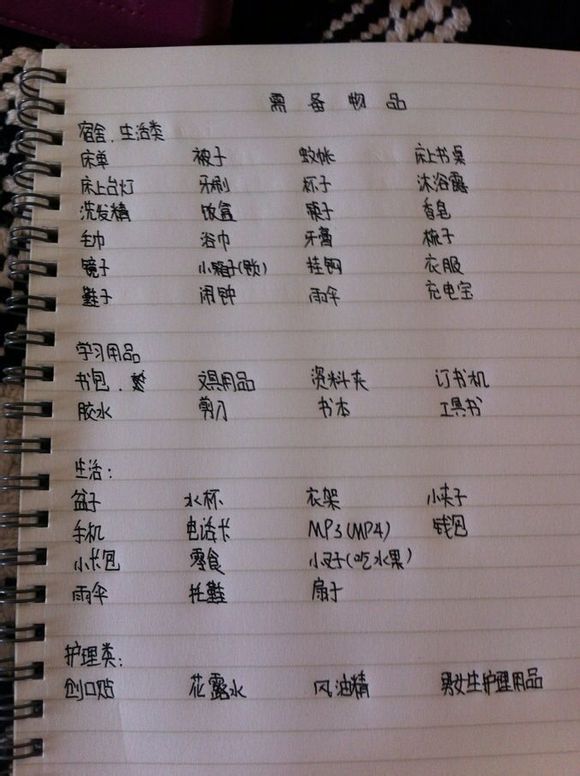 需备物品
宿舍、生活类
床单 被子 蚊帐 床上书桌
床上台灯 牙刷 杯子 沐浴露
洗发精 饭盒 筷子 香皂
毛巾 浴巾 牙膏 梳子
镜子 小箱子(锁) 挂钩 衣服
鞋子 闹钟 雨伞 充电宝
学习用品
书包、 文具用品 资料夹 订书机
胶水 剪刀 书本 工具书
生活:
盆子 水杯 衣架 小夹子
手机 电话卡 MP3(MP4) 钱包
小卡包 零食 小叉子(吃水果)
雨伞 拖鞋 扇子
护理类:
创口贴 花露水 风油精 男女生护理用品